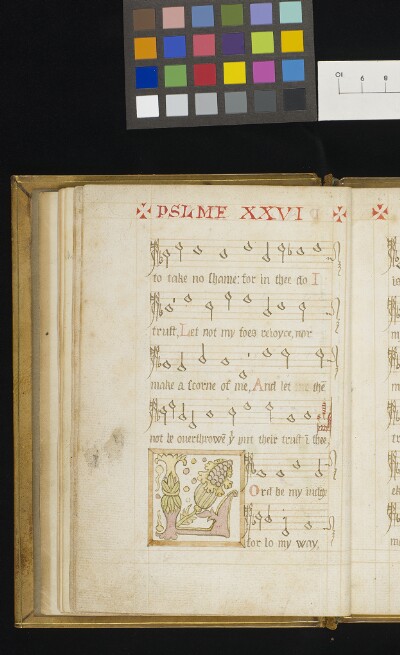 PSLME XXVI
to take no shame: for in thee do I
trust, Let not my foes rejoyce, nor
make a scorne of me, And let the͂
not be overthrowe͂ yt put their trust i͂ thee,
Lord be my iudg
for lo my way,